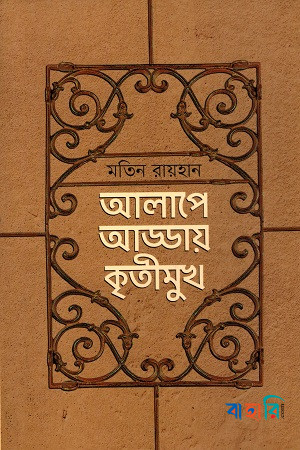 মতিন রায়হান
আলাপে
আড্ডায়
কৃতীমুখ
.com